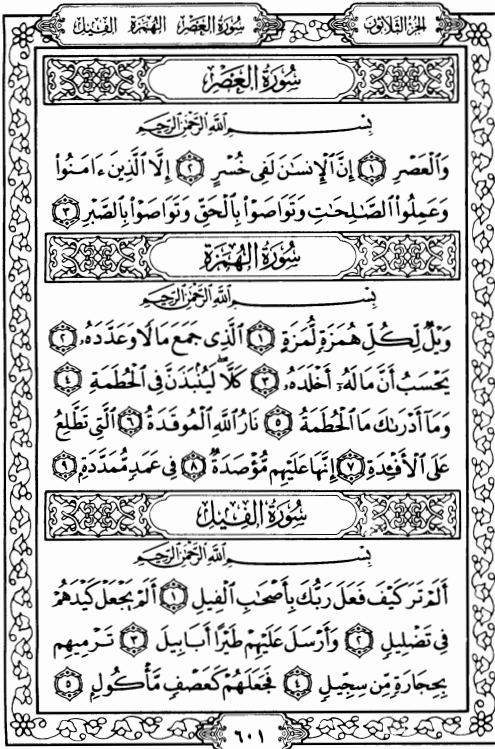 الجزء الثلاثون سورة العصر الهمزة الفيل
سُورَةُ العَصْرِ
بِسْمِ ٱللَّهِ ٱلرَّحْمَٰنِ ٱلرَّحِيمِ
وَٱلْعَصْرِ ۝١ إِنَّ ٱلْإِنسَٰنَ لَفِى خُسْرٍ ۝٢ إِلَّا ٱلَّذِينَ ءَامَنُوا۟
وَعَمِلُوا۟ ٱلصَّٰلِحَٰتِ وَتَوَاصَوْا۟ بِٱلْحَقِّ وَتَوَاصَوْا۟ بِٱلصَّبْرِ ۝٣
سُورَةُ الهُمَزَةِ
بِسْمِ ٱللَّهِ ٱلرَّحْمَٰنِ ٱلرَّحِيمِ
وَيْلٌ لِّكُلِّ هُمَزَةٍ لُّمَزَةٍ ۝١ ٱلَّذِى جَمَعَ مَالًا وَعَدَّدَهُۥ ۝٢
يَحْسَبُ أَنَّ مَالَهُۥٓ أَخْلَدَهُۥ ۝٣ كَلَّا ۖ لَيُنۢبَذَنَّ فِى ٱلْحُطَمَةِ ۝٤
وَمَآ أَدْرَىٰكَ مَا ٱلْحُطَمَةُ ۝٥ نَارُ ٱللَّهِ ٱلْمُوقَدَةُ ۝٦ ٱلَّتِى تَطَّلِعُ
عَلَى ٱلْأَفْـِٔدَةِ ۝٧ إِنَّهَا عَلَيْهِم مُّؤْصَدَةٌ ۝٨ فِى عَمَدٍ مُّمَدَّدَةٍۭ ۝٩
سُورَةُ الفِيلِ
بِسْمِ ٱللَّهِ ٱلرَّحْمَٰنِ ٱلرَّحِيمِ
أَلَمْ تَرَ كَيْفَ فَعَلَ رَبُّكَ بِأَصْحَٰبِ ٱلْفِيلِ ۝١ أَلَمْ يَجْعَلْ كَيْدَهُمْ
فِى تَضْلِيلٍ ۝٢ وَأَرْسَلَ عَلَيْهِمْ طَيْرًا أَبَابِيلَ ۝٣ تَرْمِيهِم
بِحِجَارَةٍ مِّن سِجِّيلٍ ۝٤ فَجَعَلَهُمْ كَعَصْفٍ مَّأْكُولٍۭ ۝٥
٦٠١